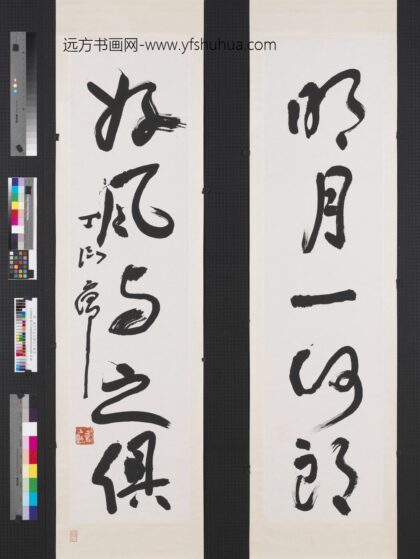 远方书画网-www.yfshuhua.com
明月一何朗
好风与之俱